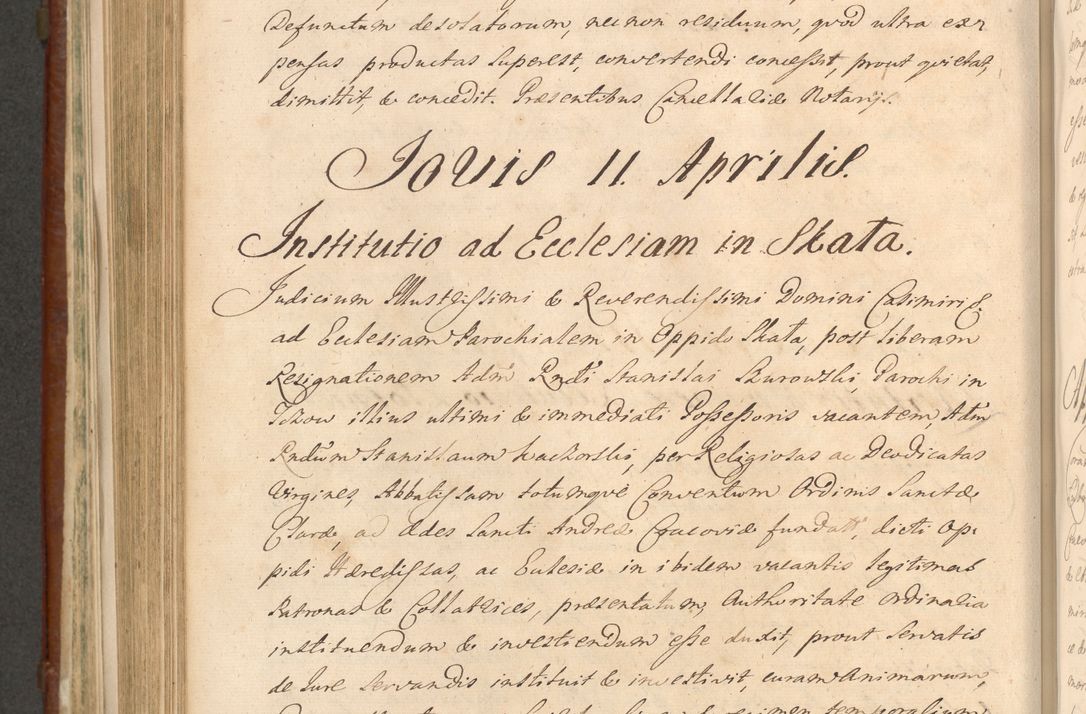 Defunctum desolatorum, nec non residuum, quod ultra ex-
pensas productas superest, convertendi concessit, prout quietat,
dimittit, & concedit. Præsentibus Cancellariæ Notarijs.
Jovis 11. Aprilis.
Institutio ad Ecclesiam in Skała.
Judicium Illustrissimi & Reverendissimi Domini Casimiri &
ad Ecclesiam Parochialem in Oppido Skała, post liberam
Resignationem Adm Rndi Stanislai Skurowski, Parochi in
illius ultimi & immediati Possessoris vacantem, Adm
Rndum Stanislaum Wachorski, per Religiosas ac Deodicatas
Virgines, Abbatissam totumque Conventum Ordinis Sanctæ
Claræ, ad Ædes Sancti Andreæ Cracoviæ fundatt, dicti Op-
pidi Hæredissas, ac Eclesiæ in ibidem vacantis legitimas
Patronas & Collatrices, præsentatum, Authoritate Ordinaria
instituendum & investiendum esse duxit, prout servatis
de Jure servandis instituit & investivit, curam Animarum,
temporalium